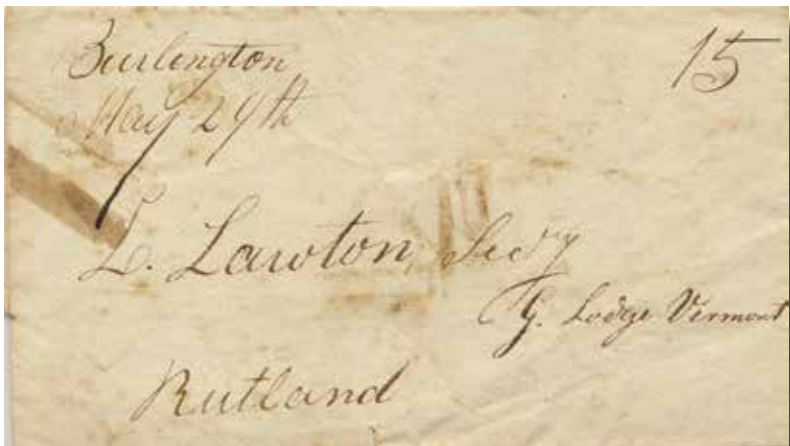 Burlington 15
May 29th
L. Lawton, Secry
G. Lodge Vermont
Rutland